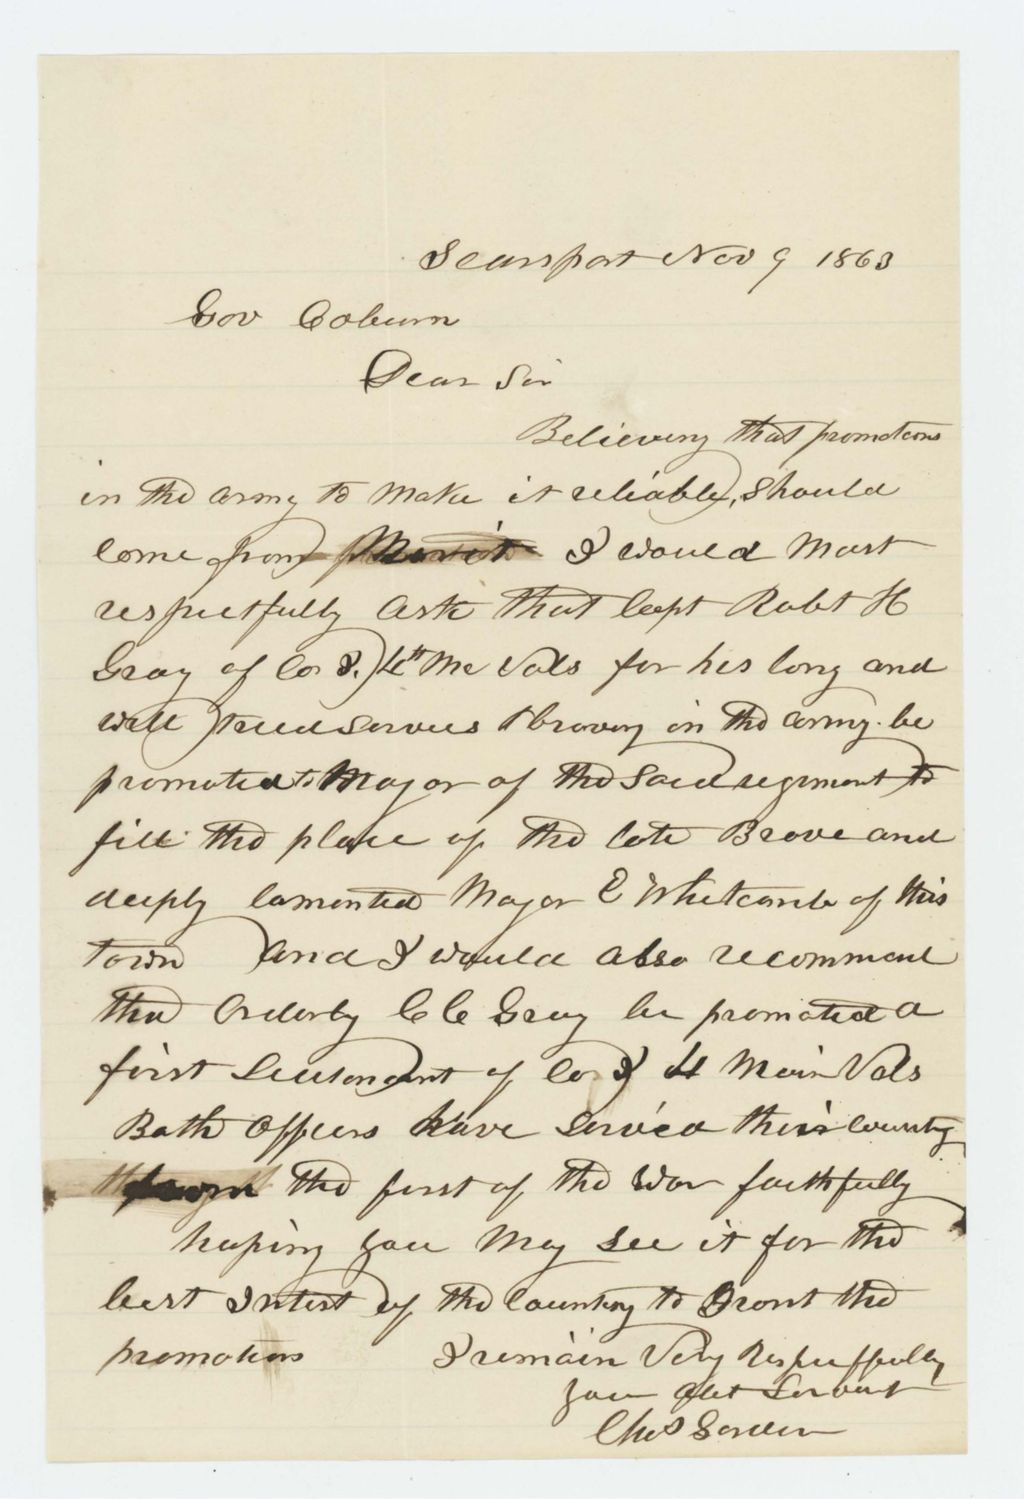 Searsport Nov 9 1863
Gov Coburn
Dear Sir
Believing that promotions
in the army to make it reliable, should
come from Merit I would Most
respectfully ask that Capt Robt H
Gray of Co I. 4th Me Vols for his long and
well tried servces & bravery in the army be
promoted to Major of the said regiment to
fill the place of the late Brave and
deeply lamented Major E Whitcomb of this
town and I would also recommend
that Orderly C C Gray be promoted a
first Lieutenant of Co I 4 Main Vols
Both officers have served their country
from the first of the war faithfully
hoping you May see it for the
best Intrest of the Country to Gront the
promotions I remain Very Respectfully
your obt Servant
Chas Gordon